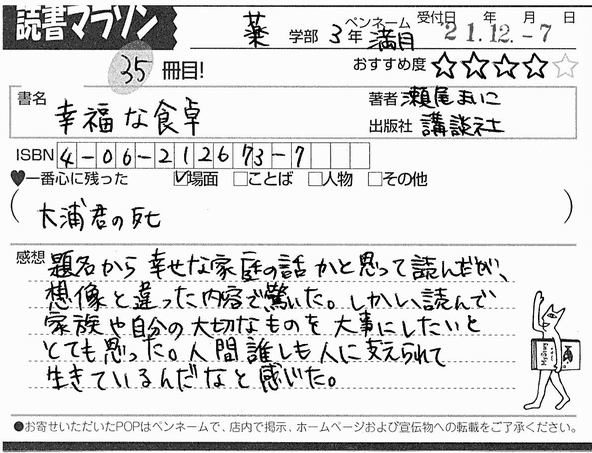 読書マラソン
薬 学部 3年 ペンネーム 満月 受付日 年 月 日
21.12.-7
35 冊目! おすすめ度 ★★★★☆
書名 幸福な食卓
著者 瀬尾まいこ
出版社 講談社
ISBN 4-06-212673-7
♥一番心に残った ☑場面 □ことば □人物 □その他
(大浦君の死)
感想 題名から幸せな家庭の話かと思って読んだが、
想像と違った内容で驚いた。しかし、読んで
家族や自分の大切なものを大事にしたいと
とても思った。人間誰しも人に支えられて
生きているんだなと感じた。
●お寄せいただいたPOPはペンネームで、店内で掲示、ホームページおよび宣伝物への転載をご了承ください。